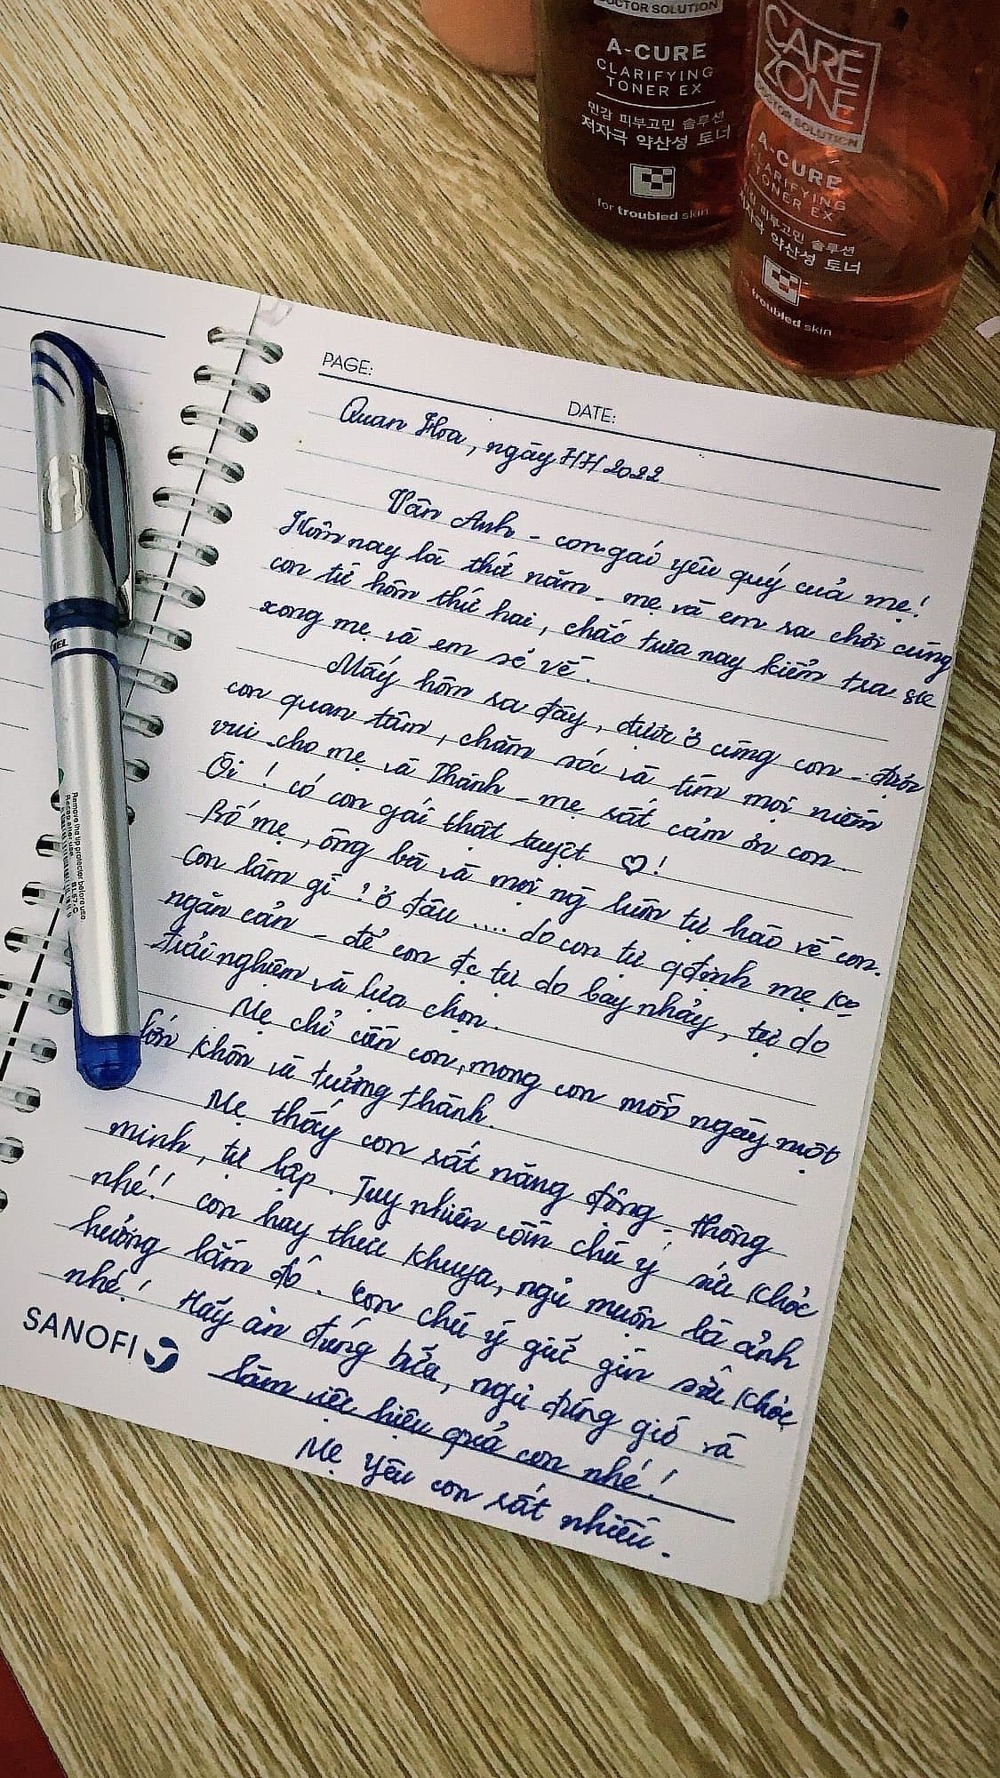 DOCTOR SOLUTION
A-CURE
CLARIFYING
TONER EX
민감 피부고민 솔루션
저자극 약산성 토너
for troubled skin
CARE
ZONE
DOCTOR SOLUTION
A-CURE
CLARIFYING
TONER EX
피부고민 솔루션
저자극 약산성 토너
troubled skin
PAGE:
DATE:
Quan Hoa, ngày 7/7/2022
Vân Anh - con gái yêu quý của mẹ!
Hôm nay là thứ năm - mẹ và em ra chơi cùng
con từ hôm thứ hai, chắc trưa nay kiểm tra sk
xong mẹ và em sẽ về.
Mấy hôm ra đây, được ở cùng con - được
con quan tâm, chăm sóc và tìm mọi niềm
vui cho mẹ và Thành - mẹ rất cảm ơn con.
Ôi! có con gái thật tuyệt ♡!
Bố mẹ, ông bà và mọi ng luôn tự hào về con.
Con làm gì? ở đâu .... do con tự qđịnh mẹ ko
ngăn cản - để con đc tự do bay nhảy, tự do
trải nghiệm và lựa chọn.
Mẹ chỉ cần con, mong con mỗi ngày một
lớn khôn và trưởng thành.
Mẹ thấy con rất năng động - thông
minh, tự lập. Tuy nhiên cần chú ý sức khỏe
nhé! con hay thức khuya, ngủ muộn là ảnh
hưởng lắm đó. Con chú ý giữ gìn sức khỏe
nhé! Hãy ăn đúng bữa, ngủ đúng giờ và
làm việc hiệu quả con nhé!
Mẹ yêu con rất nhiều.
SANOFI
Remove the tip protector before use